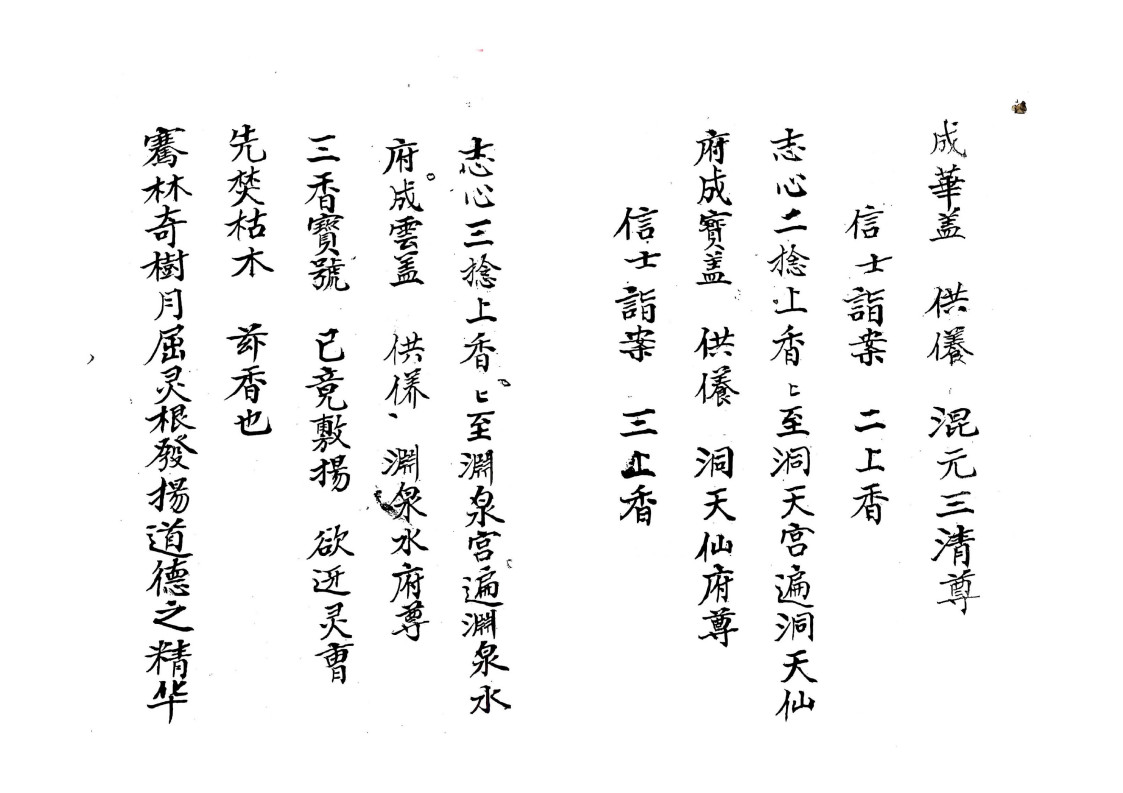 成華盖　供儀　混元三清尊
信士詣案　二上香
志心二捻上香〻至洞天宫遍洞天仙
府成寳盖　供儀　洞天仙府尊
信士詣案　三上香
志心三捻上香〻至淵泉宫遍淵泉水
府成雲盖　供养　淵泉水府尊
三香寳號　已竟敷揚　欲迓灵曺
先焚枯木　茲香也
騫林奇樹月屈灵根發揚道德之精华